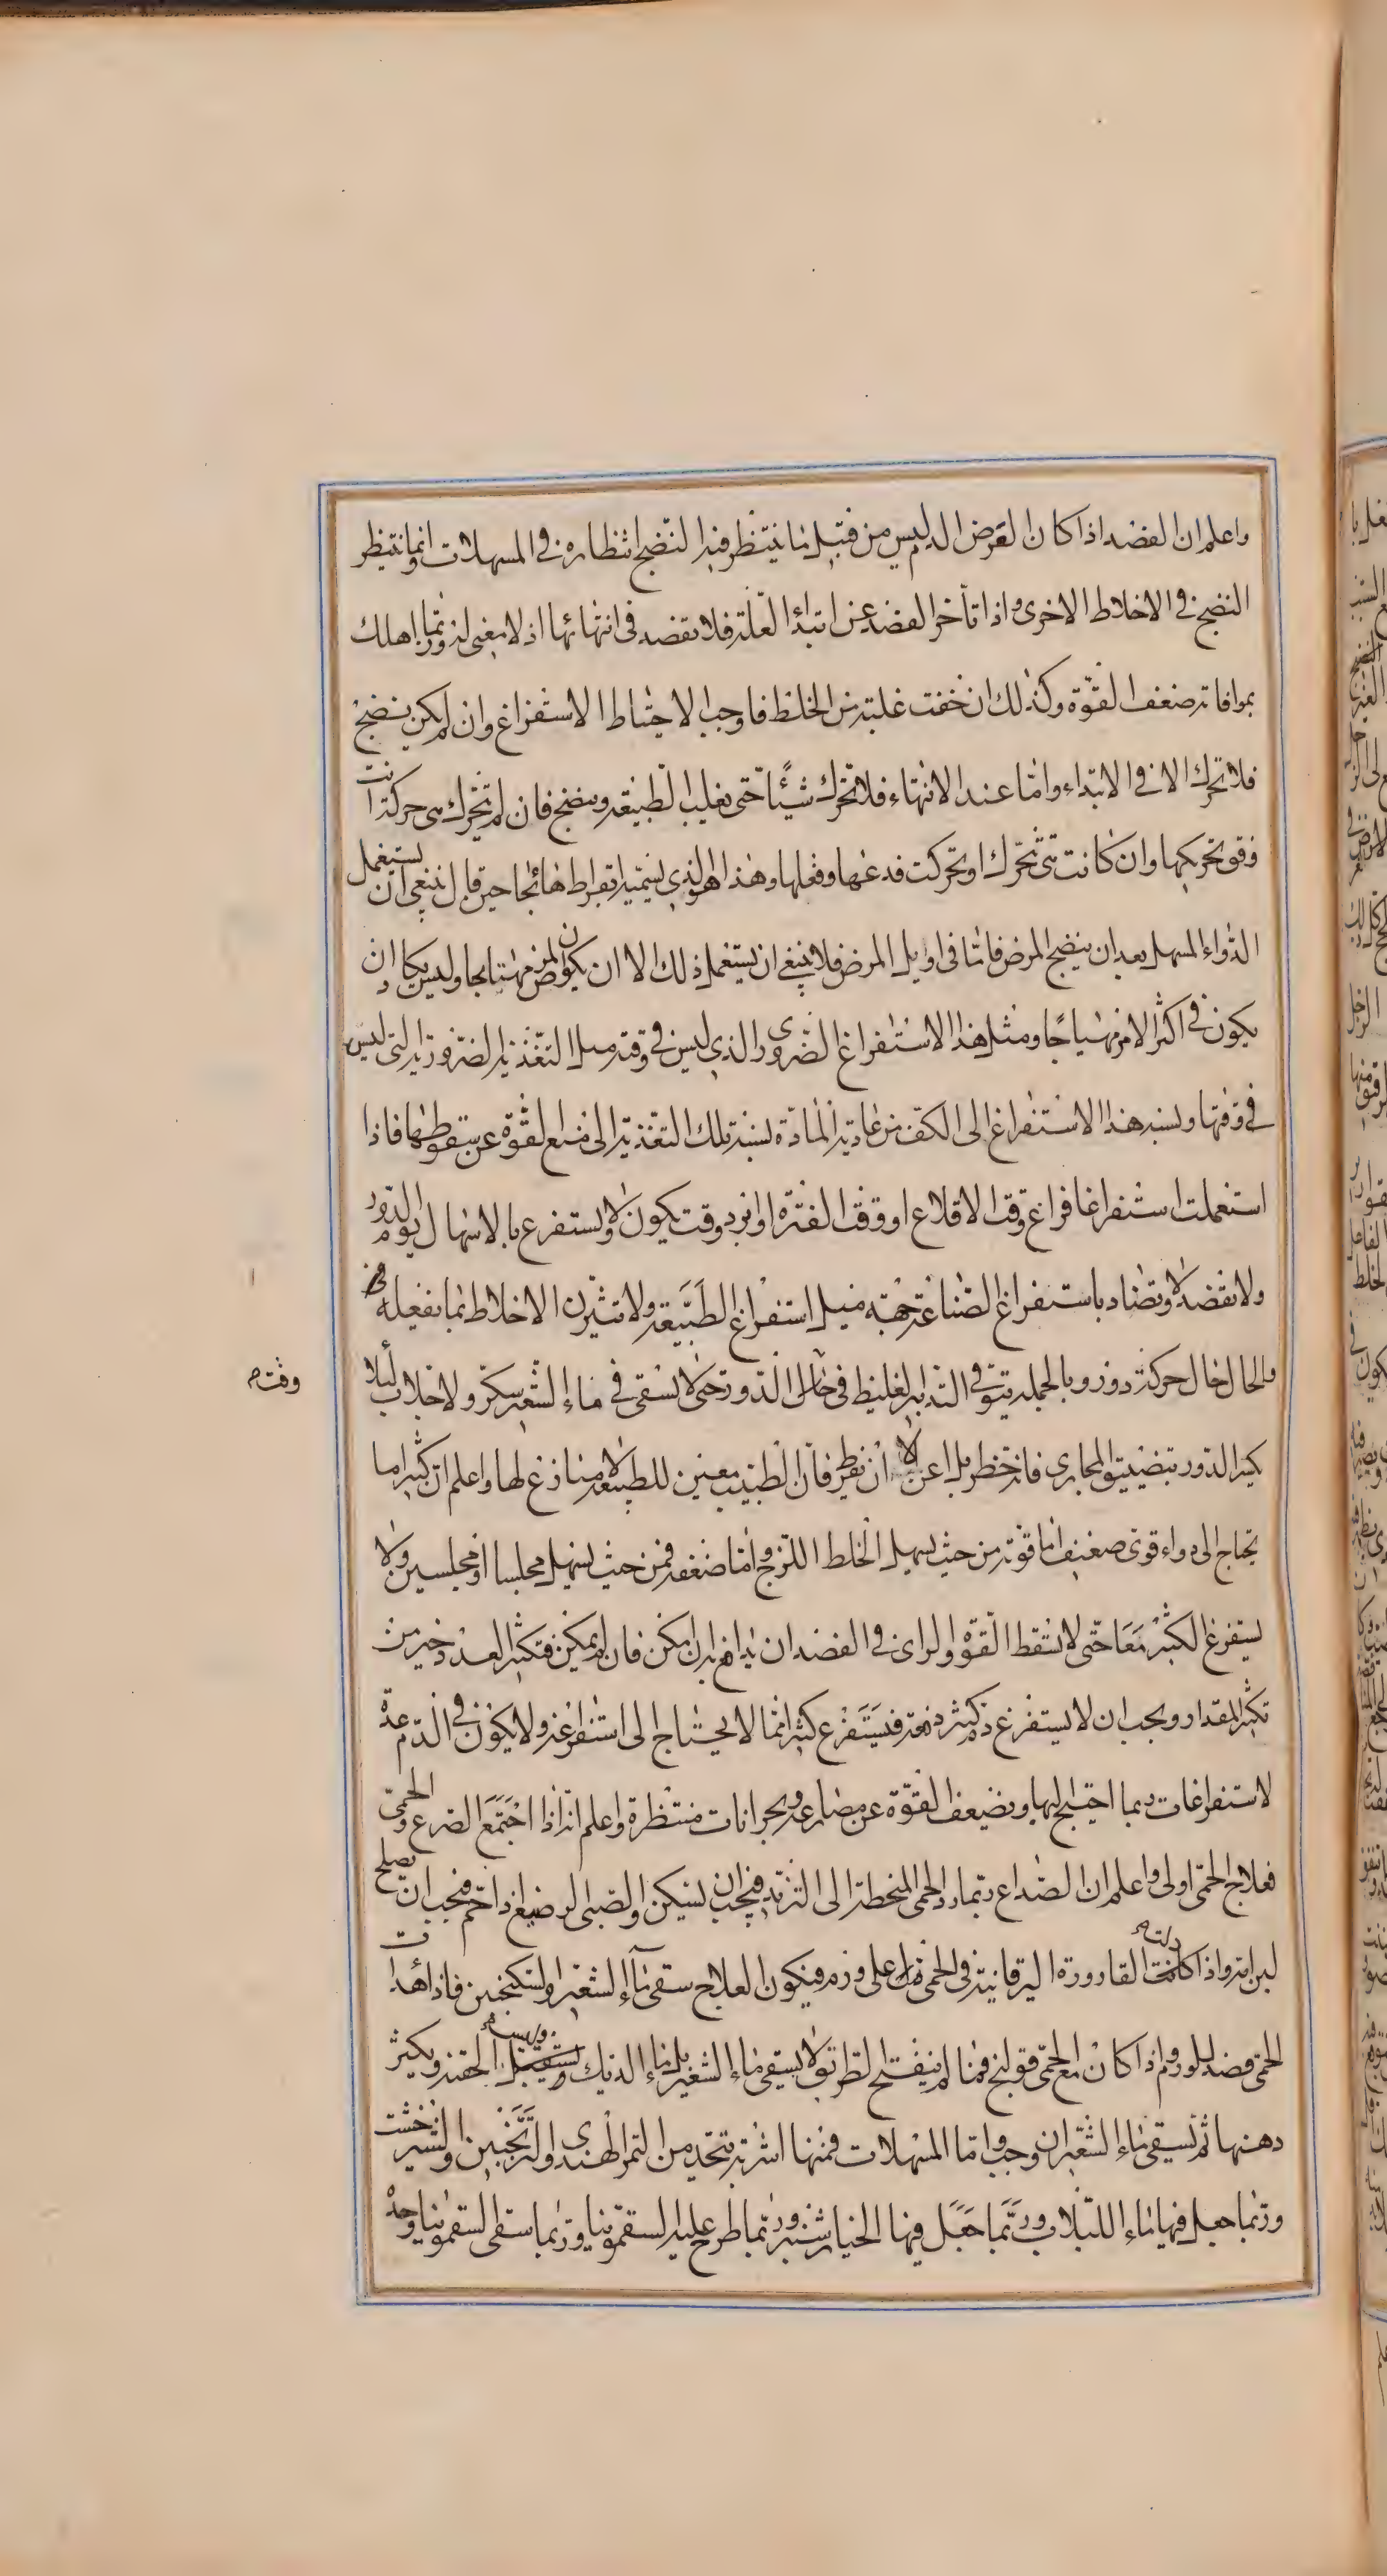 واعلم ان الفصد اذا كان الغرض الدم ليس من قبيل ما ينتظر فيه النضج انتظاره في المسهلات وانما ينتظر
النضج في الاخلاط الاخرى واذا تأخر الفصد عن ابتداء العلة فلا تفصد في انتهائها اذ لا معنى له وربما اهلك
بموافاته ضعف القوة وكذلك ان خفت غلبة من الخلط فاوجب الاحتياط الاستفراغ وان لم يكن ينضج
فلا تحرك الا في الابتداء واما عند الانتهاء فلا تحرك شيئًا حتى يغلب الطبيعة وينضج فان لم يتحرك هي حركة انت
وقوّ تحريكها وان كانت هي تتحرك او تحركت فدعها وفعلها وهذا هو الذي يسميه ابقراط هائجا حين قال ينبغي ان يستعمل
الدواء المسهل بعد ان ينضج المرض فامّا في اوايل المرض فلا ينبغي ان يستعمل ذلك الا ان يكون المرض مهتاجا وليس يكاد ان
يكون في اكثر الامر مهتاجًا ومثل هذا الاستفراغ الضروري الذي ليس في وقته مثل التغذية الضرورية التي ليس
في وقتها ونسبة هذا الاستفراغ الى الكف من عادية المادة نسبة تلك التغذية الى منع القوة عن سقوطها فاذا
استعملت استفراغا فراع وقت الاقلاع او وقت الفترة او ابرد وقت يكون ولا يستفرغ بالاسهال يوم الدور
ولا تفصد ولا تضاد باستفراغ الصناعة جهة ميل استفراغ الطبيعة ولا تثيرن الاخلاط بما تفعله في
والحال حال حركة دور وبالجملة يتوقى التدبير الغليظ في حال الدور حتى لا يسقى في ماء الشعير سكر ولا جلاب لئلا
وقت
يكثر الدور بتضييق المجاري فانه خطر بل اعن الا ان تفرط فان الطبيب معين للطبيعة لا منازع لها واعلم ان كثيرا ما
يحتاج الى دواء قوي ضعيف اما قوته من حيث يسهل الخلط اللزج واما ضعفه فمن حيث يسهل مجلسا او مجلسين ولا
يستفرغ الكثير معًا حتى لا تسقط القوة والراي في الفصد ان يدافع به ان امكن فان لم يمكن فتكثير العدد خير من
تكثير المقدار ويجب ان لا يستفرغ دم كثير دفعة فيستفرغ كثير مما لا يحتاج الى استفراغه ولا يكون في الدم عدة
لاستفراغات ربما احتيج اليها ويضيعف القوة عن مصارعة وبحرانات منتظرة واعلم انه اذا اجتمع الصرع والحمى
فعلاج الحمى اولى واعلم ان الصداع ربما رد الحمى المنحطة الى التزيد فيجب ان يسكن والصبي الرضيع اذا حم فيجب ان يصلح
لبن امه واذا كانت القارورة اليرقانية في الحمى دلت على ورم فيكون العلاج سقي ماء الشعير والسكنجبين فاذا هدات
الحمى فصد للورم واذا كان مع الحمى قولنج فما لم ينفتح الطريق لا يسقى ماء الشعير بل ماء الديك ويستعمل الحقنة ويكثر
دهنها ثم يسقى ماء الشعير ان وجب واما المسهلات فمنها اشربة تتخذ من التمر الهندي والترنجبين والشيرخشت
وربما جعل فيها ماء اللبلاب وربما جعل فيها الخيارشنبر وربما طرح عليه السقمونيا وربما سقى السقمونيا وحده